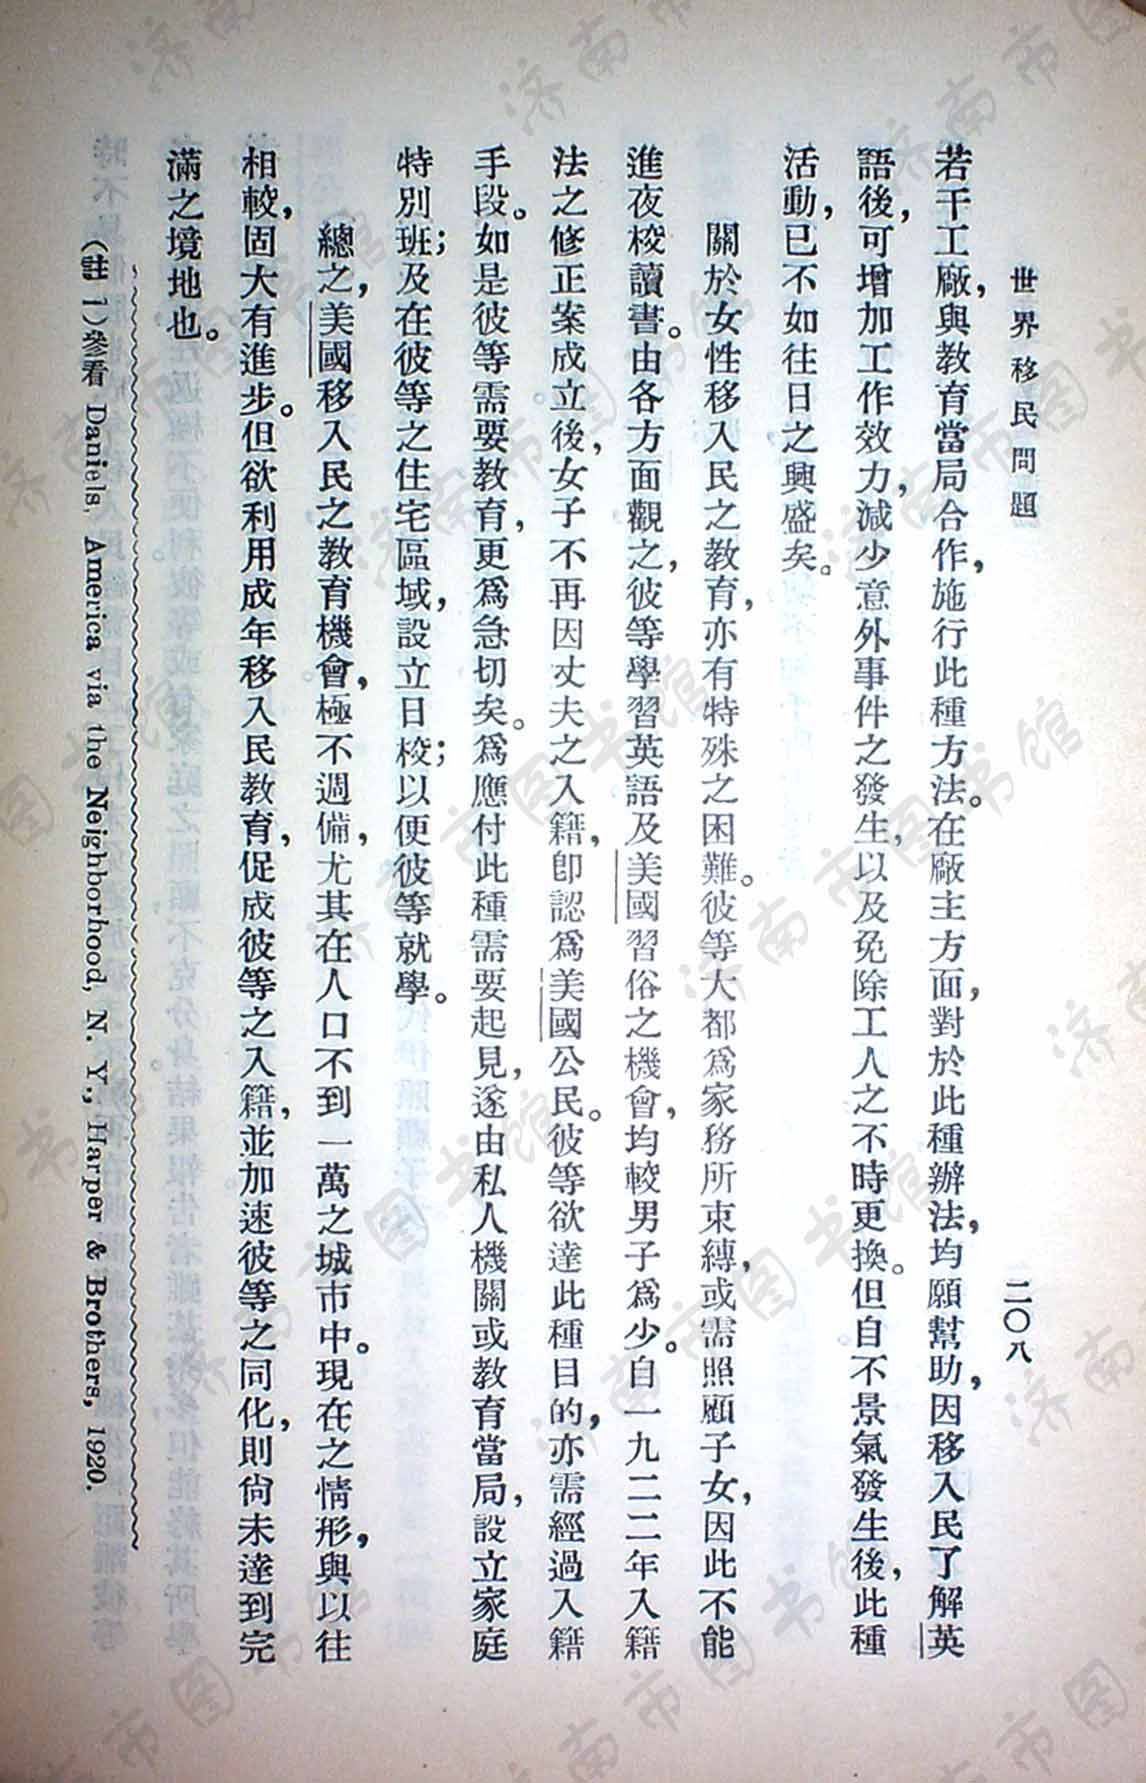 世界移民問題
二〇八
若干工廠，與教育當局合作，施行此種方法。在廠主方面，對於此種辦法，均願幫助，因移入民了解英
語後，可增加工作效力，減少意外事件之發生，以及免除工人之不時更換。但自不景氣發生後，此種
活動，已不如往日之興盛矣。
關於女性移入民之教育，亦有特殊之困難。彼等大都爲家務所束縛，或需照顧子女，因此不能
進夜校讀書。由各方面觀之，彼等學習英語及美國習俗之機會，均較男子爲少。自一九二二年入籍
法之修正案成立後，女子不再因丈夫之入籍，卽認爲美國公民。彼等欲達此種目的，亦需經過入籍
手段。如是彼等需要教育，更爲急切矣。爲應付此種需要起見，遂由私人機關或教育當局，設立家庭
特別班；及在彼等之住宅區域，設立日校；以便彼等就學。
總之，美國移入民之教育機會，極不週備，尤其在人口不到一萬之城市中。現在之情形，與以往
相較，固大有進步。但欲利用成年移入民教育，促成彼等之入籍，並加速彼等之同化，則尙未達到完
滿之境地也。
（註1）參看 Daniels, America via the Neighborhood, N. Y., Harper & Brothers, 1920.
济南市图书馆